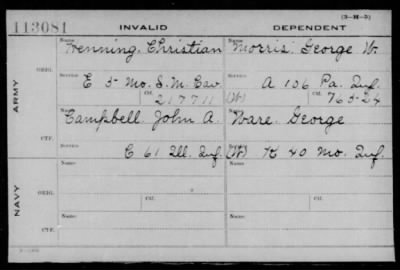 (3-H-5)
113081 INVALID DEPENDENT
Name Name
Henning, Christian Morris, George W.
ARMY
ORIG.
Service Service
E 5 Mo. S. M. Cav. A 106 Pa. Inf.
Ctf. 217711 (W) Ctf. 763-24
Name Name
Campbell, John A. Ware, George
CTF.
Service Service
C 61 Ill. Inf. (W) K 40 Mo. Inf.
Name Name
NAVY
ORIG.
Service Ctf. Service Ctf.
Name Name
CTF.
Service Service